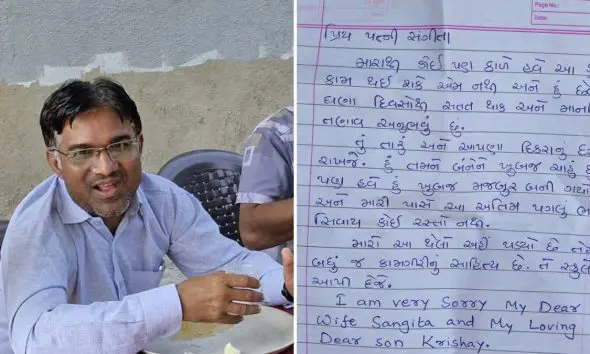 Page No.:
Date:
પ્રિય પત્ની સંગીતા
મારાથી કોઈ પણ કાળે હવે આ
કામ થઈ શકે એમ નથી અને હું
ઘણા દિવસોથી સતત થાક અને
તણાવ અનુભવું છું.
તું તારું અને આપણા દિકરાનું
રાખજે. હું તમને બંનેને ખુબજ ચાહું
પણ હવે હું ખુબજ મજબુર બની
અને મારી પાસે આ અંતિમ પગલું
સિવાય કોઈ રસ્તો નથી.
મારો આ થેલો અહીં પડ્યો છે
બધું જ કામગીરીનું સાહિત્ય છે. તે
આપી દેજે.
I am very Sorry My Dear
Wife Sangita and My Loving
Dear son Krishay.